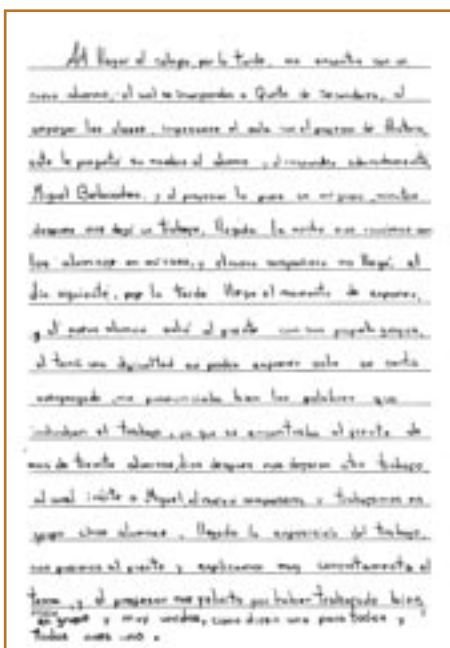 Al llegar al colegio, por la tarde, me encontre con un
nuevo alumno, el cual se incorporaba a Quinto de Secundaria, al
empezar las clases, ingresamos al aula con el profesor de Historia,
este le pregunto su nombre al alumno y el respondio
Miguel y el profesor lo puso en mi grupo, minutos
despues nos dejó un trabajo, llegada la noche nos reunimos con
los alumnos en mi casa, y el nuevo compañero no llegó, al
dia siguiente, por la tarde llego el momento de exponer,
y el nuevo alumno salió al frente con sus propios grupos,
el tenia una dificultad no podia exponer solo se sentia
no pronunciaba bien las palabras que
indicaban el trabajo, ya que se encontraba al frente de
mas de treinta alumnos, dias despues nos dejaron otro trabajo
al cual invite a Miguel, el nuevo compañero y trabajamos en
grupo cinco alumnos, llegada la exposición del trabajo,
nos pusimos al frente y explicamos muy correctamente el
tema, y el profesor nos felicito por haber trabajado bien,
en grupo y muy unidos, como dicen uno para todos y
todos para uno.